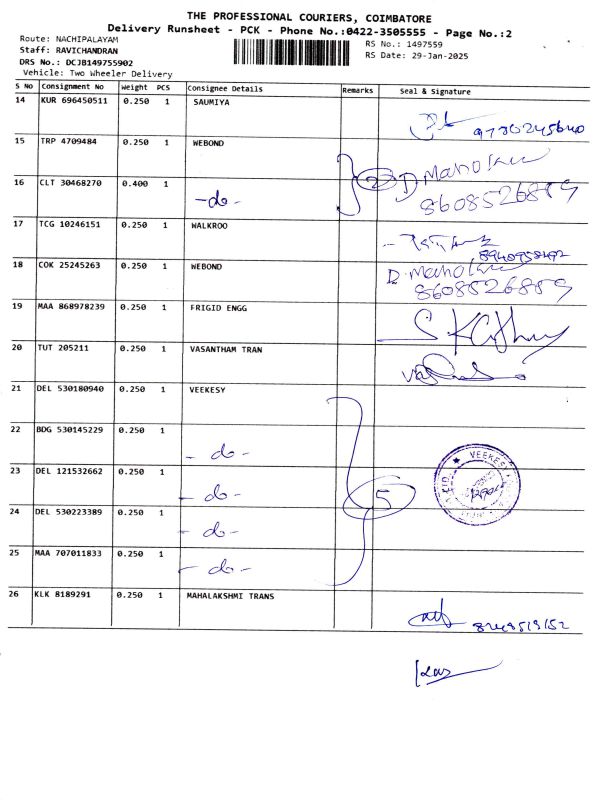 THE PROFESSIONAL COURIERS, COIMBATORE
Delivery Runsheet - PCK - Phone No.:0422-3505555 - Page No.:2
Route: NACHIPALAYAM
RS No.: 1497559
Staff: RAVICHANDRAN
RS Date: 29-Jan-2025
DRS No.: DCJB149755902
Vehicle: Two Wheeler Delivery
S No Consignment No Weight PCS Consignee Details Remarks Seal & Signature
14 KUR 696450511 0.250 1 SAUMIYA
15 TRP 4709484 0.250 1 WEBOND
16 CLT 30468270 0.400 1 -do- 2 D Mano
8608526889
17 TCG 10246151 0.250 1 WALKROO
18 COK 25245263 0.250 1 WEBOND D. Mano
8608526889
19 MAA 868978239 0.250 1 FRIGID ENGG
20 TUT 205211 0.250 1 VASANTHAM TRAN
21 DEL 530180940 0.250 1 VEEKESY
22 BDG 530145229 0.250 1 -do-
23 DEL 121532662 0.250 1 -do- 5 VEEKESY
24 DEL 530223389 0.250 1 -do-
25 MAA 707011833 0.250 1 -do-
26 KLK 8189291 0.250 1 MAHALAKSHMI TRANS